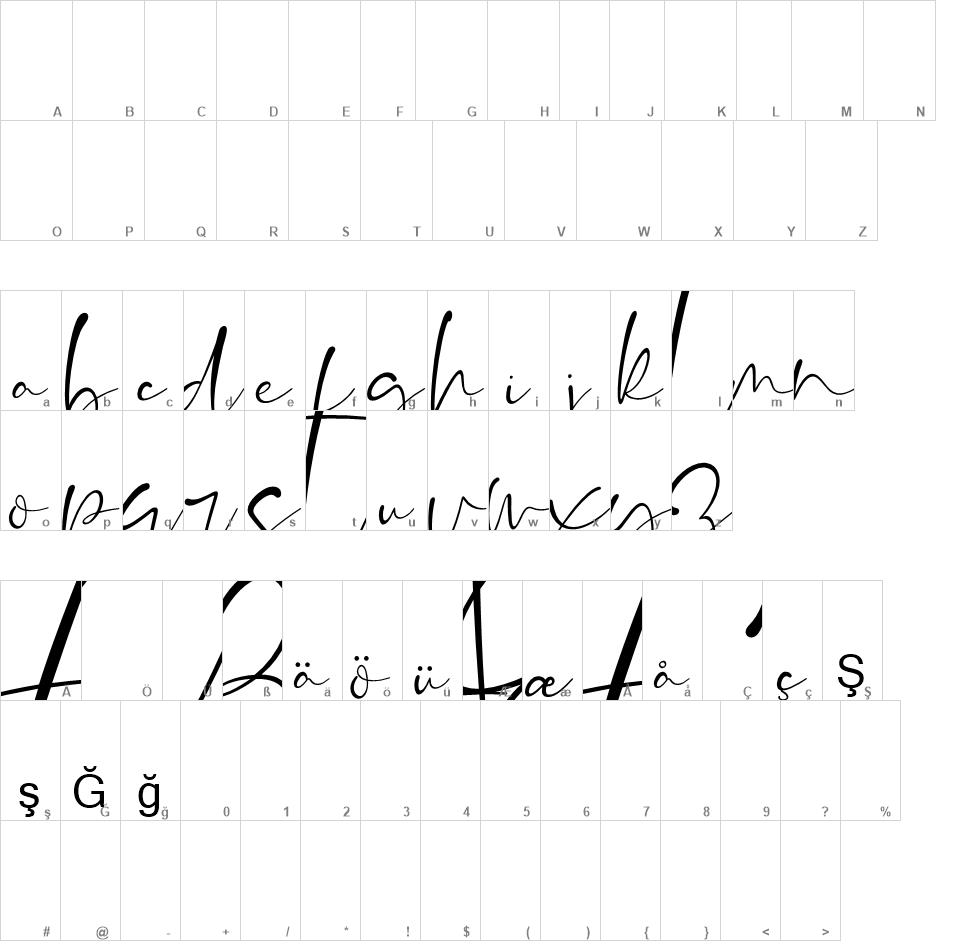 A B C D E F G H I J K L M N
O P Q R S T U V W X Y Z
a b c d e f g h i j k l m n
a b c d e f g h i j k l m n
o p q r s t u v w x y z
o p q r s t u v w x y z
Ä ß ä ö ü Æ æ Å å ç Ş
Ä Ö Ü ß ä ö ü Æ æ Å å Ç ç Ş
ş Ğ ğ
ş Ğ ğ 0 1 2 3 4 5 6 7 8 9 ? %
# @ - + / * ! $ ( ) { } < >